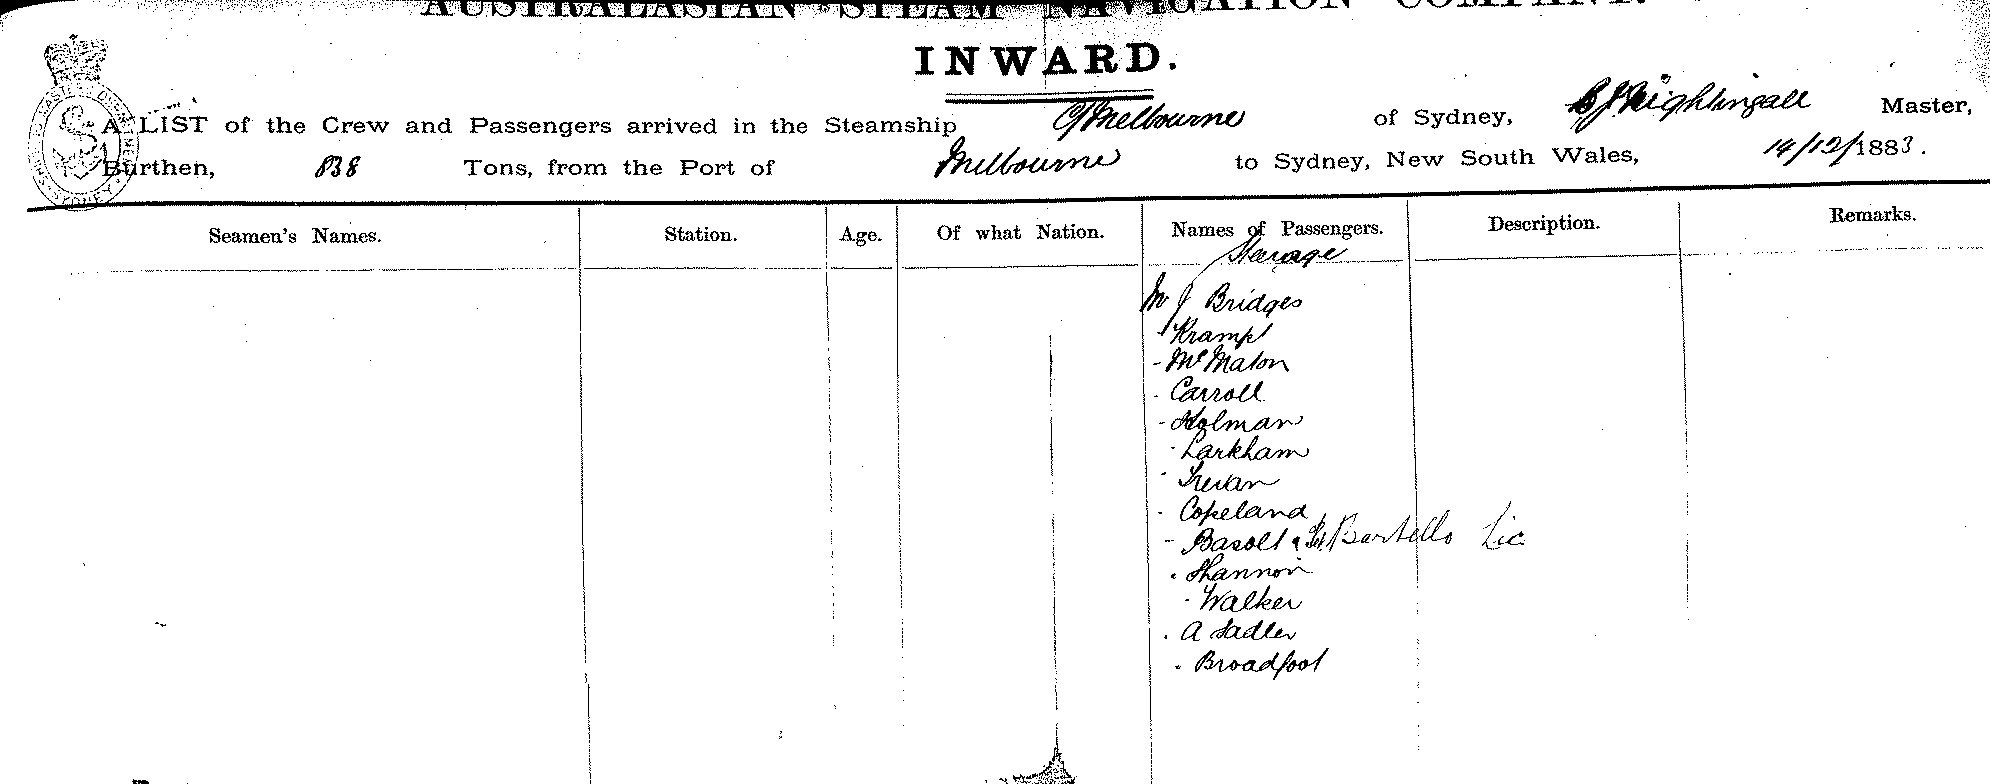 AUSTRALASIAN STEAM NAVIGATION COMPANY.
INWARD.
A LIST of the Crew and Passengers arrived in the Steamship Cy Melbourne of Sydney, Nightingall Master,
Burthen, 838 Tons, from the Port of Melbourne to Sydney, New South Wales, 14/12/1883.
Seamen's Names. Station. Age. Of what Nation. Names of Passengers. Description. Remarks.
Steerage
Mr J Bridges
- Kramp
- McMaton
- Carroll
- Holman
- Larkham
- Trevan
- Copeland
- Basolt & Bartello Lic
- Shannon
- Walker
. A Sadler
. Broadfoot